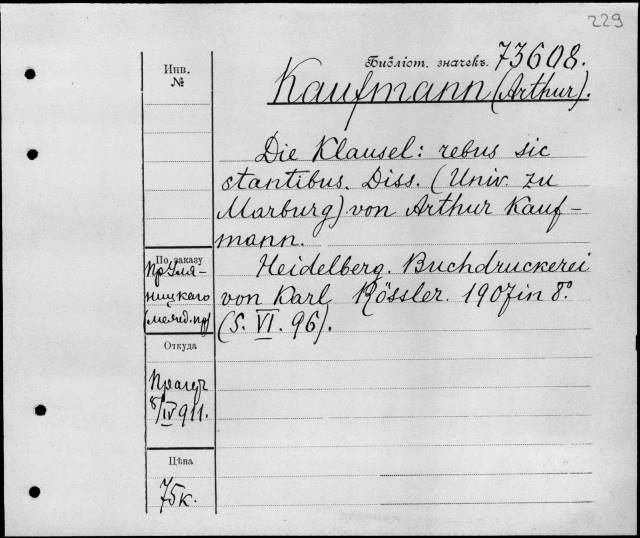 229
Библіот. значекъ. 73608.
Инв.
№
Kaufmann (Arthur).
Die Klausel: rebus sic
stantibus. Diss. (Univ. zu
Marburg) von Arthur Kauf-
mann.
Heidelberg. Buchdruckerei
von Karl Rössler. 1907 in 8°.
(S. VI. 96).
По заказу
пр. Уля-
ницкаго
Откуда
Прагеръ
8/IV 911.
Цѣна
75к.